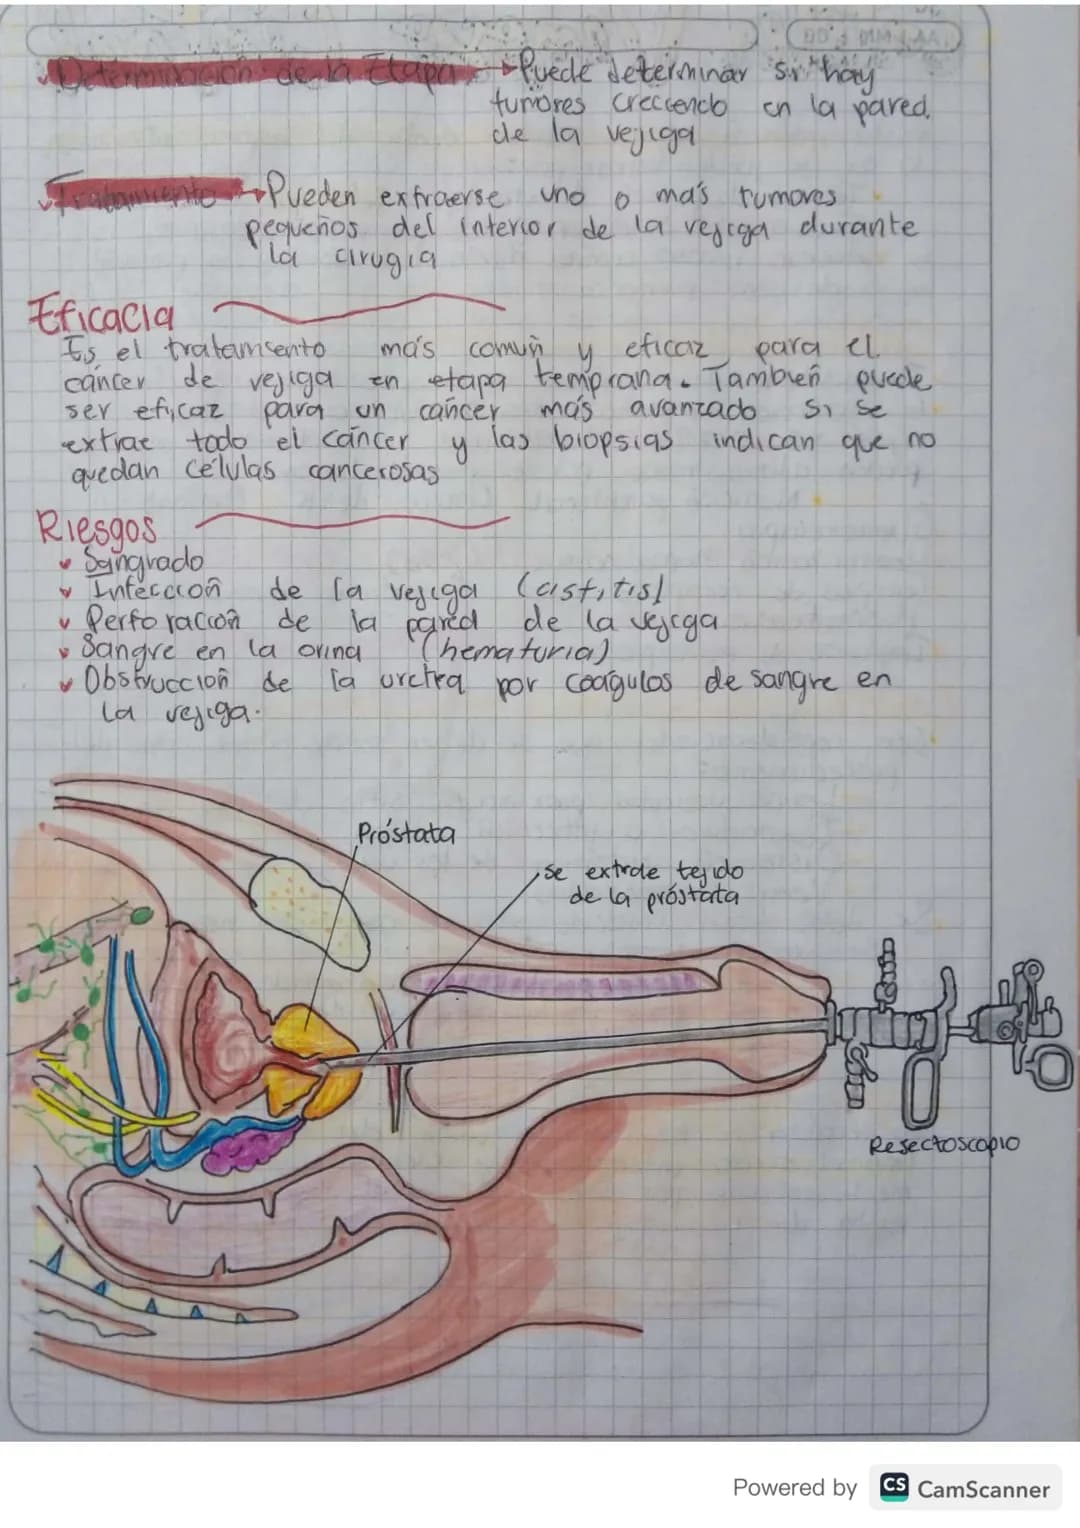 Determinación de la Etapa → Puede determinar si hay
tumores creciendo en la pared.
de la vejiga
Tratamiento → Pueden extraerse uno o más tumores
pequeños del interior de la vejiga durante
la cirugía
Eficacia
Es el tratamiento más común y eficaz para el
cáncer de vejiga en etapa temprana. También puede
ser eficaz para un cáncer más avanzado si se
extrae todo el cáncer y las biopsias indican que no
quedan células cancerosas
Riesgos
Sangrado
Infección de la vejiga (cistitis)
Perforación de la pared de la vejiga
Sangre en la orina (hematuria)
Obstrucción de la uretra por coágulos de sangre en
la vejiga.
Próstata
se extrae tejido
de la próstata
Resectoscopio
Powered by CS CamScanner